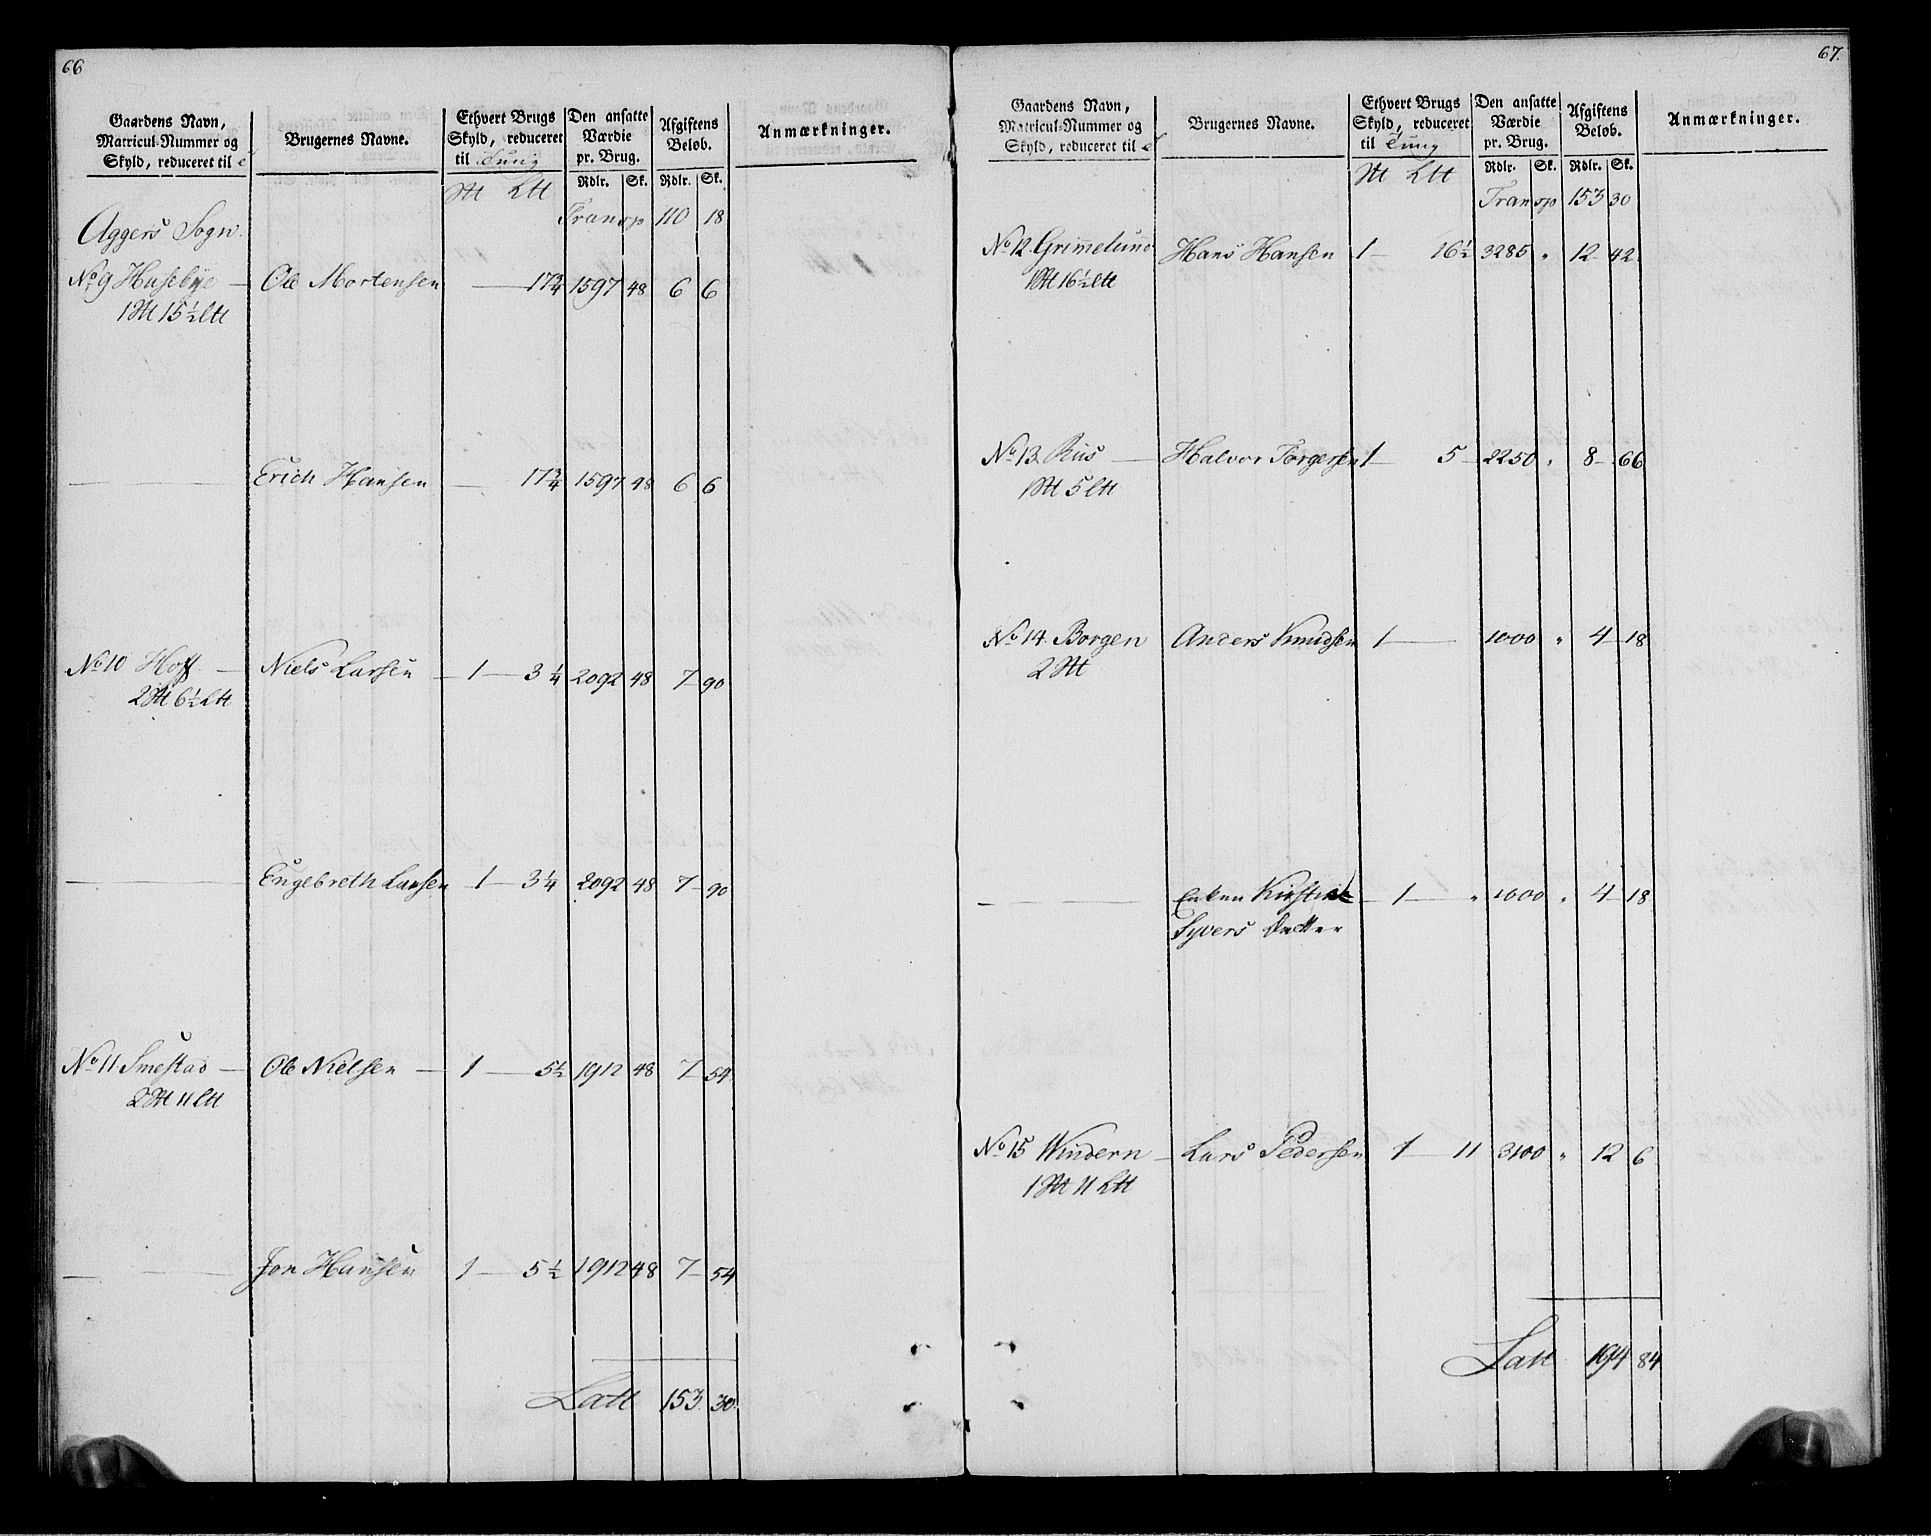 66
Gaardens Navn, Matricul-Nummer og Skyld, reduceret til | Brugernes Navne. | Ethvert Brugs Skyld, reduceret til Tung | Den ansatte Værdie pr. Brug. | Afgiftens Beløb. | Anmærkninger.
Rdlr. Sk. Rdlr. Sk.
Transp 110 18
Aggers Sogn.
No 9 Husebye — Ole Mortensen — 17 3/4 1597 48 6 6
15 1/2
— Erich Hansen — 17 3/4 1597 48 6 6
No 10 Hoff — Niels Larsen — 1 — 3 1/4 2092 48 7 — 90
2 6 1/2
— Engebreth Larsen 1 — 3 1/4 2092 48 7 — 90
No 11 Smestad — Ole Nielsen — 1 — 5 1/2 1912 48 7 — 54
2 11
— Jon Hansen 1 — 5 1/2 1912 48 7 — 54
Latt 153 30
67.
Gaardens Navn, Matricul-Nummer og Skyld, reduceret til | Brugernes Navne. | Ethvert Brugs Skyld, reduceret til Tung | Den ansatte Værdie pr. Brug. | Afgiftens Beløb. | Anmærkninger.
Rdlr. Sk. Rdlr. Sk.
Transp 153 30
No 12 Grimelund Hans Hansen 1 — 16 1/2 3285 " 12 — 42
1 16 1/2
No 13 Riis — Halvor Torgersen 1 — 5 — 2250 " 8 — 66
1 5
No 14 Borgen Anders Knudsen 1 — 1000 " 4 — 18
2
— Enken Kirstine — 1 — " 1000 " 4 — 18
Syvers Datter
No 15 Windern — Lars Pedersen 1 — 11 3100 " 12 6
1 11
Latt 194 84